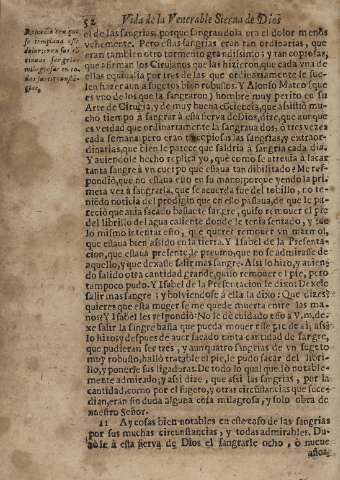 52 Vida de la Venerable Sierva de Dios
el de las sangrias, porque sangrandola era el dolor menos
vehemente. Pero estas sangrias eran tan ordinarias, que
eran tambien otro tormento grandissimos y tan copiosas,
que afirman los Cirujanos que las hizieron, que cada vna de
ellas equivalia por tres de las que ordinariamente le sue-
len hazer aun a sugetos bien robustos. Y Alonso Mateo (que
es vno de los que la sangraron) hombre muy perito en su
Arte de Cirugia, y de muy buena conciencia, que assistiò mu-
cho tiempo à sangrar à esta sierva de Dios, dize, que aunque
es verdad que ordinariamente la sangrava dos, ò tres vezes
cada semana pero eran tan copiosas las sangrias, y extraor-
dinarias, que bien le parece que saldria à sangria cada dia.
Y aviendole hecho replica yo, què como se atrevia à sacar
tanta sangre à vn cuerpo que estava tan debilitado? Me res-
pondiò, que no estava esso en su mano; porque vendo la pri-
mera vez à sangrarla, que se acuerda fue del tobillo, no te-
niendo noticia del prodigio que en ello passava, de que le pa-
reciò que avia sacado bastante sangre, quiso remover el pie
del librillo del agua caliente donde le tenia sentado, y fue
lo mismo intentar esso, que querer remover vn marmol,
que estava bien assido en la tierra. Y Isabel de la Presenta-
cion, que estava presente, le previno, que no se admirasse de
aquello, y que dexasse salir mas sangre. Assi lo hizo, y avien-
do salido otra cantidad grande, quiso remover el pie, pero
tampoco pudo. Y Isabel de la Presentacion le dixo: Dexele
salir mas sangre; y bolviendose à ella la dixo: Que dizes?
quieres que esta muger se me quede muerta entre las ma-
nos? Y Isabel les respondiò: No le dè cuidado esso a V. m. de-
xe salir la sangre hasta que pueda mover este pie de ai, assi
lo hizo; y despues de aver sacado tanta cantidad de sangre,
que pudieran ser tres, y aun quatro sangrias de vn sugeto
muy robusto, hallò tratible el pie, le pudo sacar del libri-
llo, y ponerle sus ligaduras. De todo lo qual quedò notable-
mente admirado; y assi dize, que assi las sangrias, por la
cantidad, como por el sugeto, y otras circunstancias que suce-
dian, eran sin duda alguna cosa milagrosa, y solo obra de
nuestro Señor.
11 Ay cosas bien notables en este caso de las sangrias
por sus muchas circunstancias, y todas admirables. Du-
rable à esta sierva de Dios el sangrarle ocho, ò nueve
años,